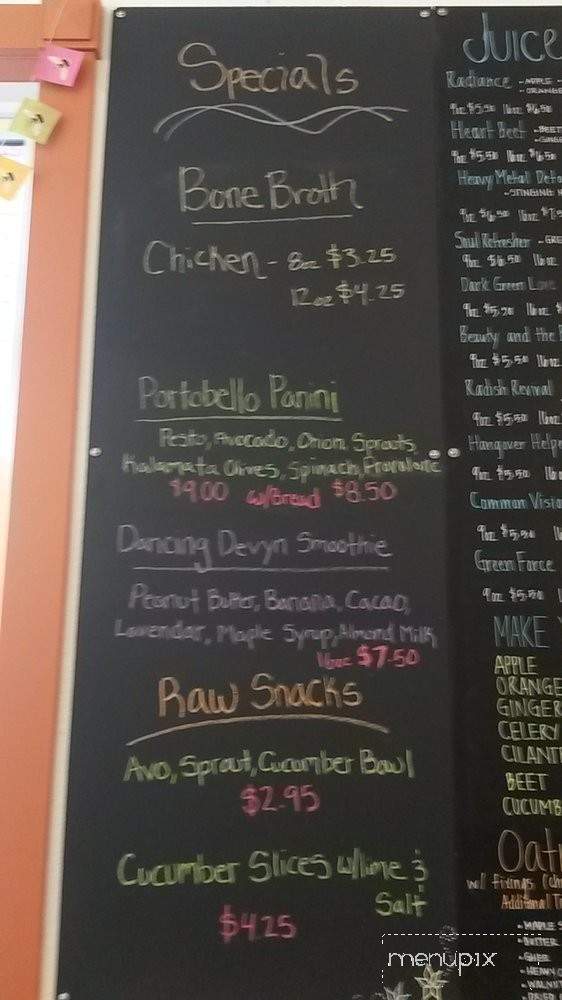 Specials
Bone Broth
Chicken - 8oz $3.25
12oz $4.25
Portobello Panini
Pesto, Avocado, Onion Sprouts,
Kalamata Olives, Spinach, Provolone
$9.00 w/Bread $8.50
Dancing Devyn Smoothie
Peanut Butter, Banana, Cacao,
Lavender, Maple Syrup, Almond Milk
16oz $7.50
Raw Snacks
Avo, Sprout, Cucumber Bowl
$2.95
Cucumber Slices w/lime &
Salt
$4.25
Juice
Radiance - APPLE
- ORANGE
9oz $5.50 16oz $6.50
Heart Beet - BEET
9oz $5.50 16oz $6.50
Heavy Metal Deto
- STINGING
9oz $6.50 16oz
Soul Refresher - GRE
9oz $6.50 16oz
Dark Green Love
9oz $5.50 16oz
Beauty and the B
9oz $5.50 16oz
Radish Revival
9oz $5.50 16oz
Hangover Helpe
9oz $5.50 16oz
Common Visio
9oz $5.50
Green Force
9oz $5.50
MAKE
APPLE
ORANGE
GINGER
CELERY
CILANT
BEET
CUCUMB
Oat
w/ fixings
Additional
- MAPLE S
- BUTTER
- GHEE
- HEAVY
- WALNUT
menupix